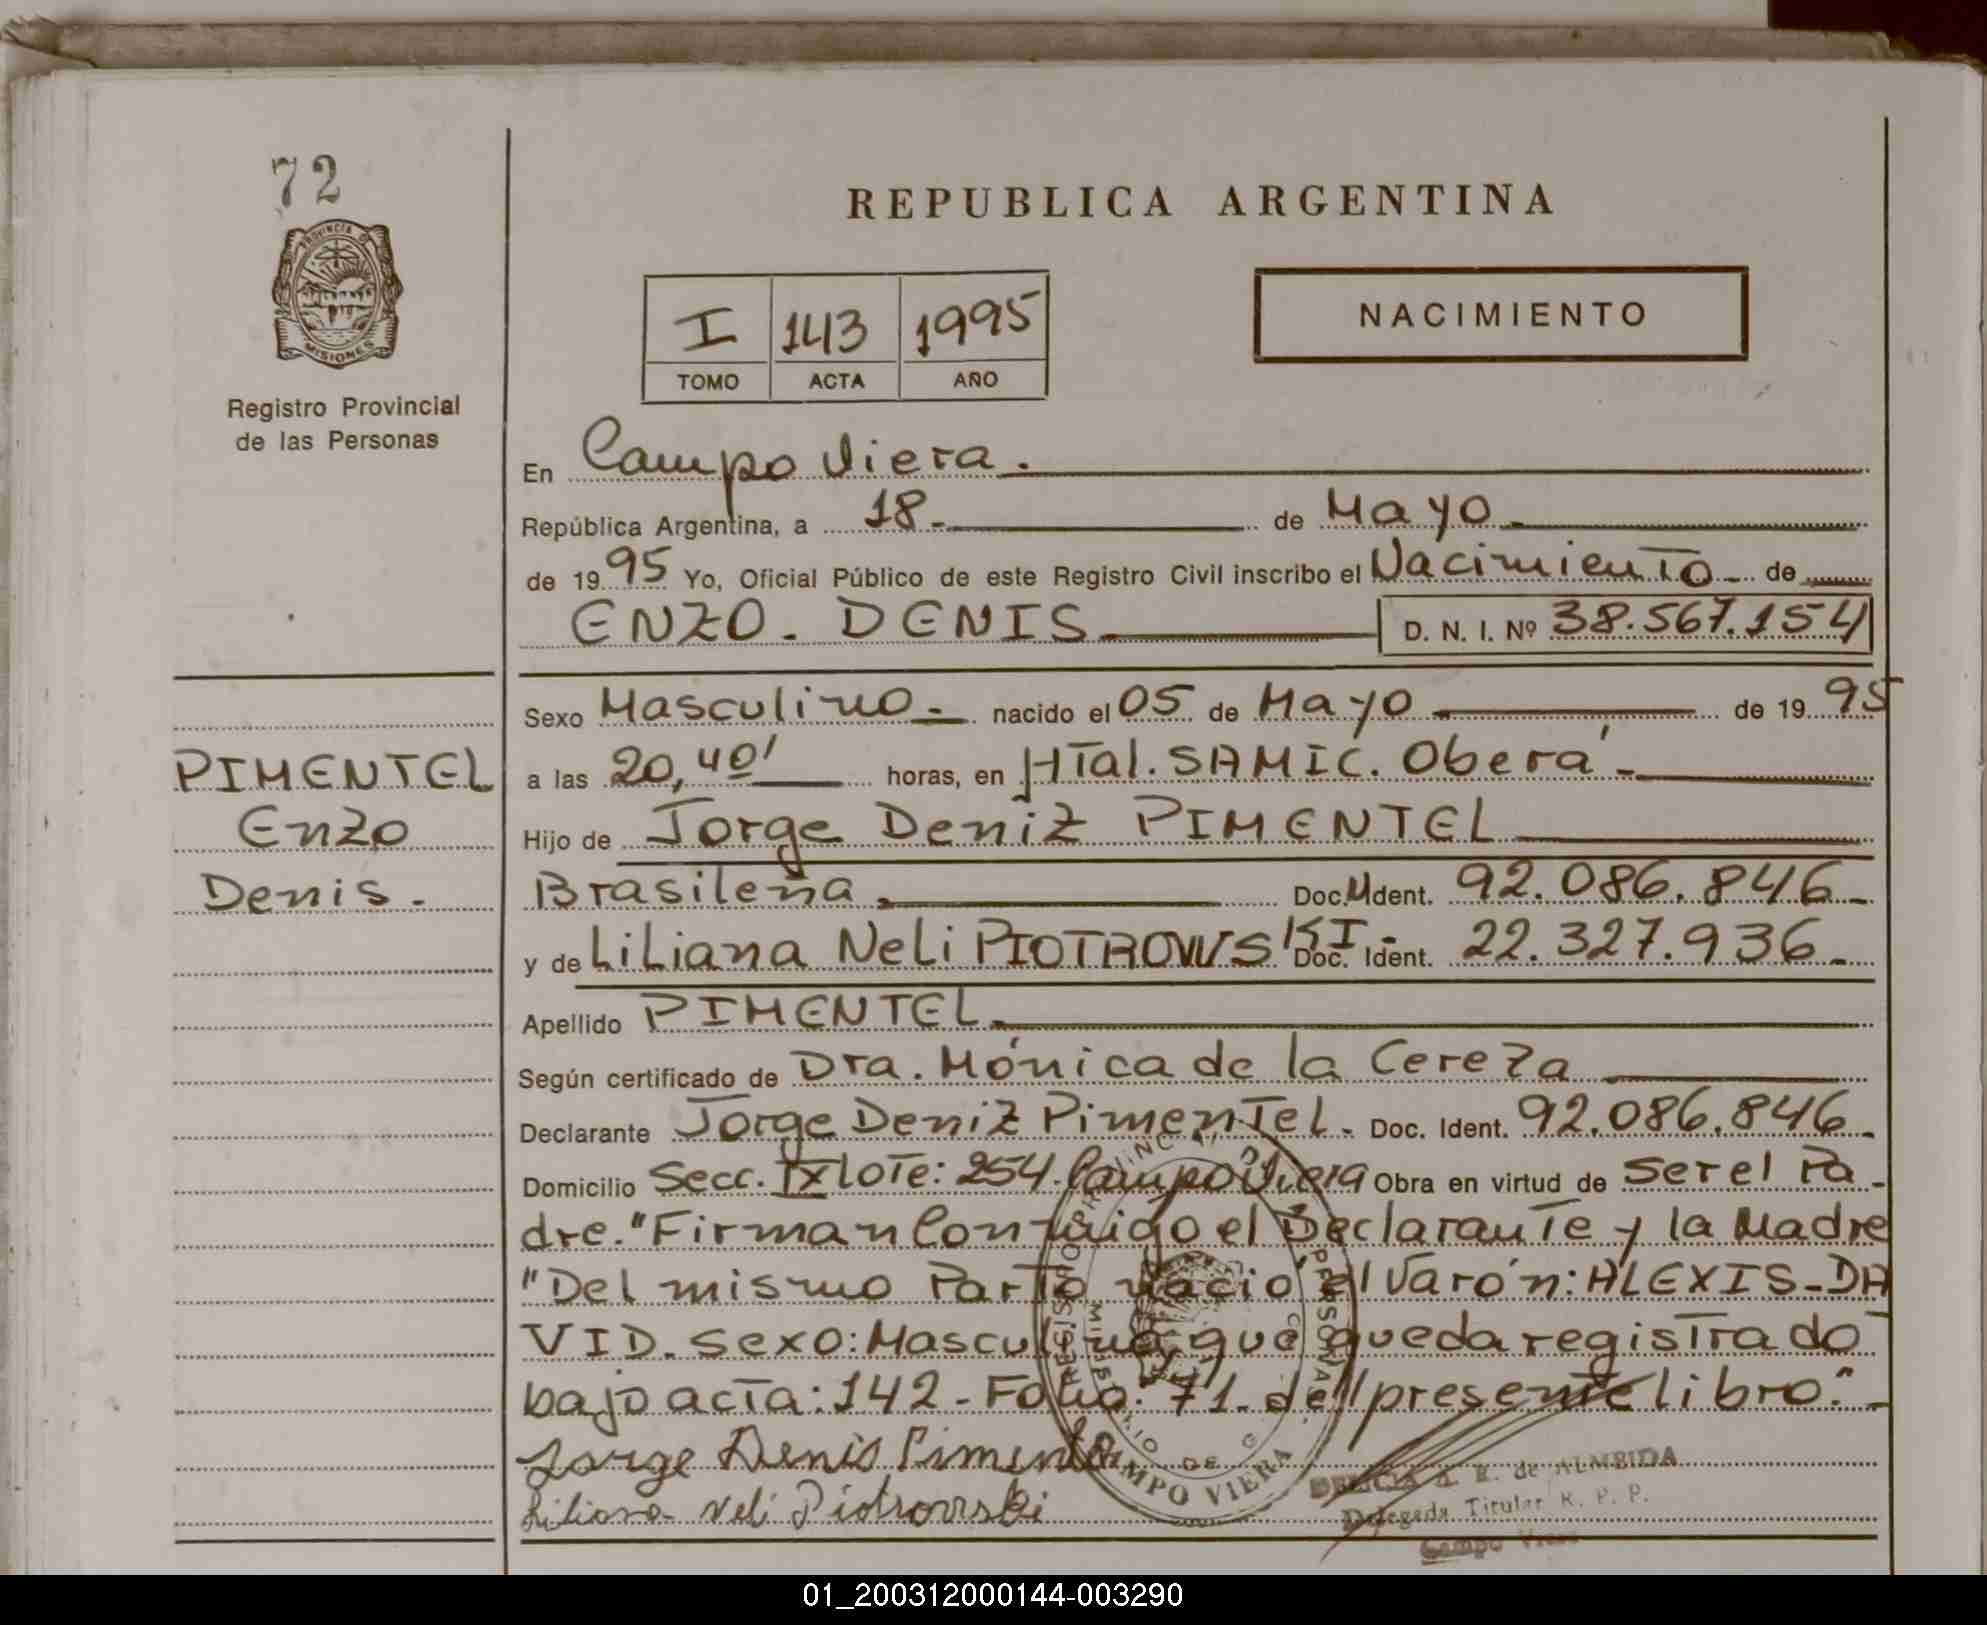 72
PROVINCIA DE
MISIONES
Registro Provincial
de las Personas
REPUBLICA ARGENTINA
I 143 1995
TOMO ACTA AÑO
NACIMIENTO
En Campo Viera.
República Argentina, a 18- de Mayo
de 1995 Yo, Oficial Público de este Registro Civil inscribo el Nacimiento de
ENZO. DENIS D. N. I. Nº 38.567.154
Sexo Masculino nacido el 05 de Mayo de 1995
PIMENTEL
Enzo
Denis.
a las 20,40' horas, en HTal. SAMIC. Oberá
Hijo de Jorge Deniz PIMENTEL
Brasileña Doc. Ident. 92.086.846
y de Liliana Neli PIOTROWSKI Doc. Ident. 22.327.936
Apellido PIMENTEL
Según certificado de Dra. Mónica de la Cereza
Declarante Jorge Deniz Pimentel. Doc. Ident. 92.086.846
Domicilio Secc. IX lote: 254. Campo Viera Obra en virtud de ser el Pa-
dre. "Firman Conmigo el Declarante y la Madre
"Del mismo Parto nació el Varón: ALEXIS-DA
VID. sexo: Masculino, que queda registrado
bajo acta: 142 - Folio: 71. del presente libro."
Jorge Denis Pimentel
Liliana Neli Piotrovski
CAMPO VIERA
A. E. de ALMEIDA
Delegada Titular R. P. P.
Campo Viera
01_200312000144-003290